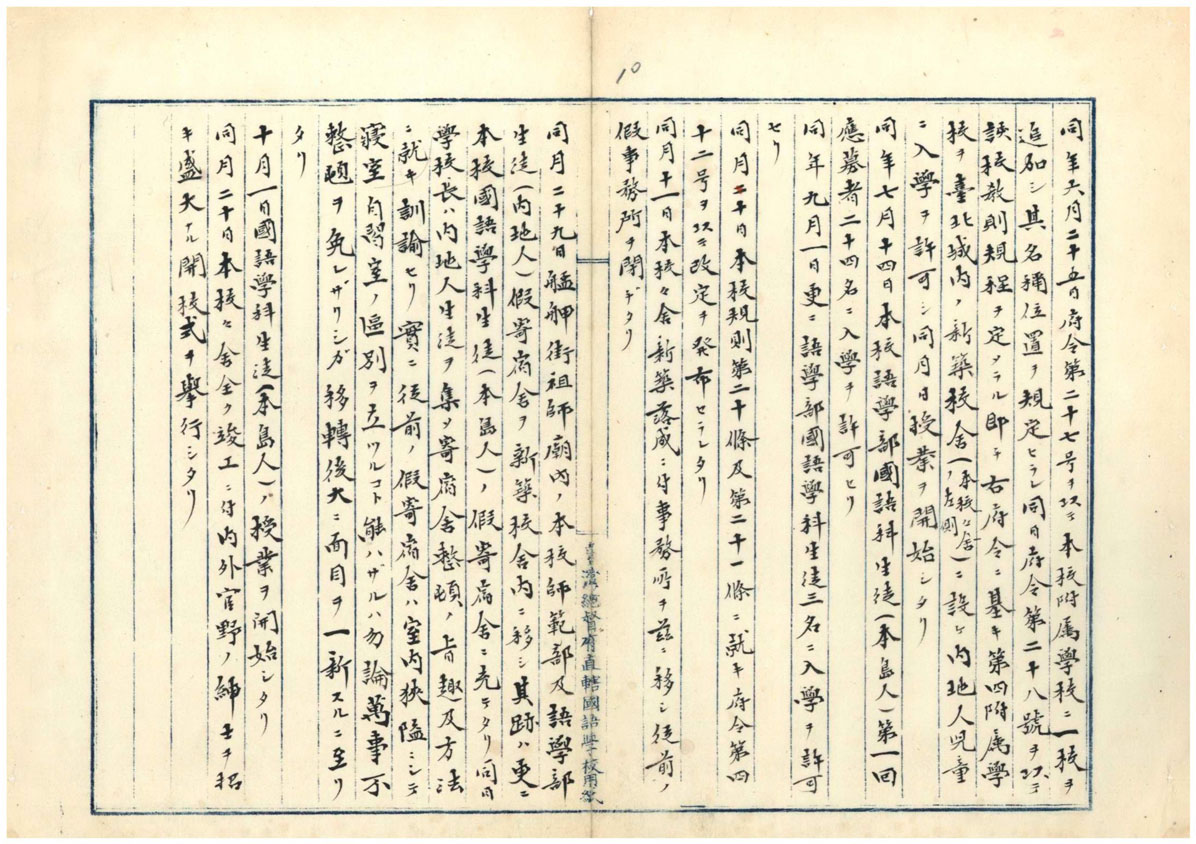 10
同年六月二十五日府令第二十七号ヲ以テ本校附属學校ニ一校ヲ
追加シ其名稱位置ヲ規定セラレ同日府令第二十八號ヲ以テ
該校教則規程ヲ定メラル即チ右府令ニ基キ第四附属學
校ヲ臺北城内ノ新築校舎(本校々舎ノ左側)ニ設ケ内地人児童
ニ入學ヲ許可シ同月日授業ヲ開始シタリ
同年七月十四日本校語學部國語科生徒(本島人)第一回
應募者二十四名ニ入學ヲ許可セリ
同年九月一日更ニ語學部國語學科生徒三名ニ入學ヲ許可
セリ
同月二十日本校規則第二十條及第二十一條ニ就キ府令第四
十二号ヲ以テ改定ヲ発布セラレタリ
同月十一日本校々舎新築落成ニ付事務所ヲ茲ニ移シ従前ノ
假事務所ヲ閉ヂタリ
臺灣總督府直轄國語學校用紙
同月二十九日艋舺街祖師廟内ノ本校師範部及語學部
生徒(内地人)假寄宿舎ヲ新築校舎内ニ移シ其跡ハ更ニ
本校國語學科生徒(本島人)ノ假寄宿舎ニ充テタリ同日
學校長ハ内地人生徒ヲ集メ寄宿舎整頓ノ旨趣及方法
ニ就キ訓諭セリ實ニ従前ノ假寄宿舎ハ室内狭隘ニシテ
寝室自習室ノ區別ヲ立ツルコト能ハザルハ勿論萬事不
整頓ヲ免レザリシガ移轉後大ニ面目ヲ一新スルニ至リ
タリ
十月一日國語學科生徒(本島人)ノ授業ヲ開始シタリ
同月二十日本校々舎全ク竣工ニ付内外官野ノ紳士ヲ招
キ盛大ナル開校式ヲ擧行シタリ